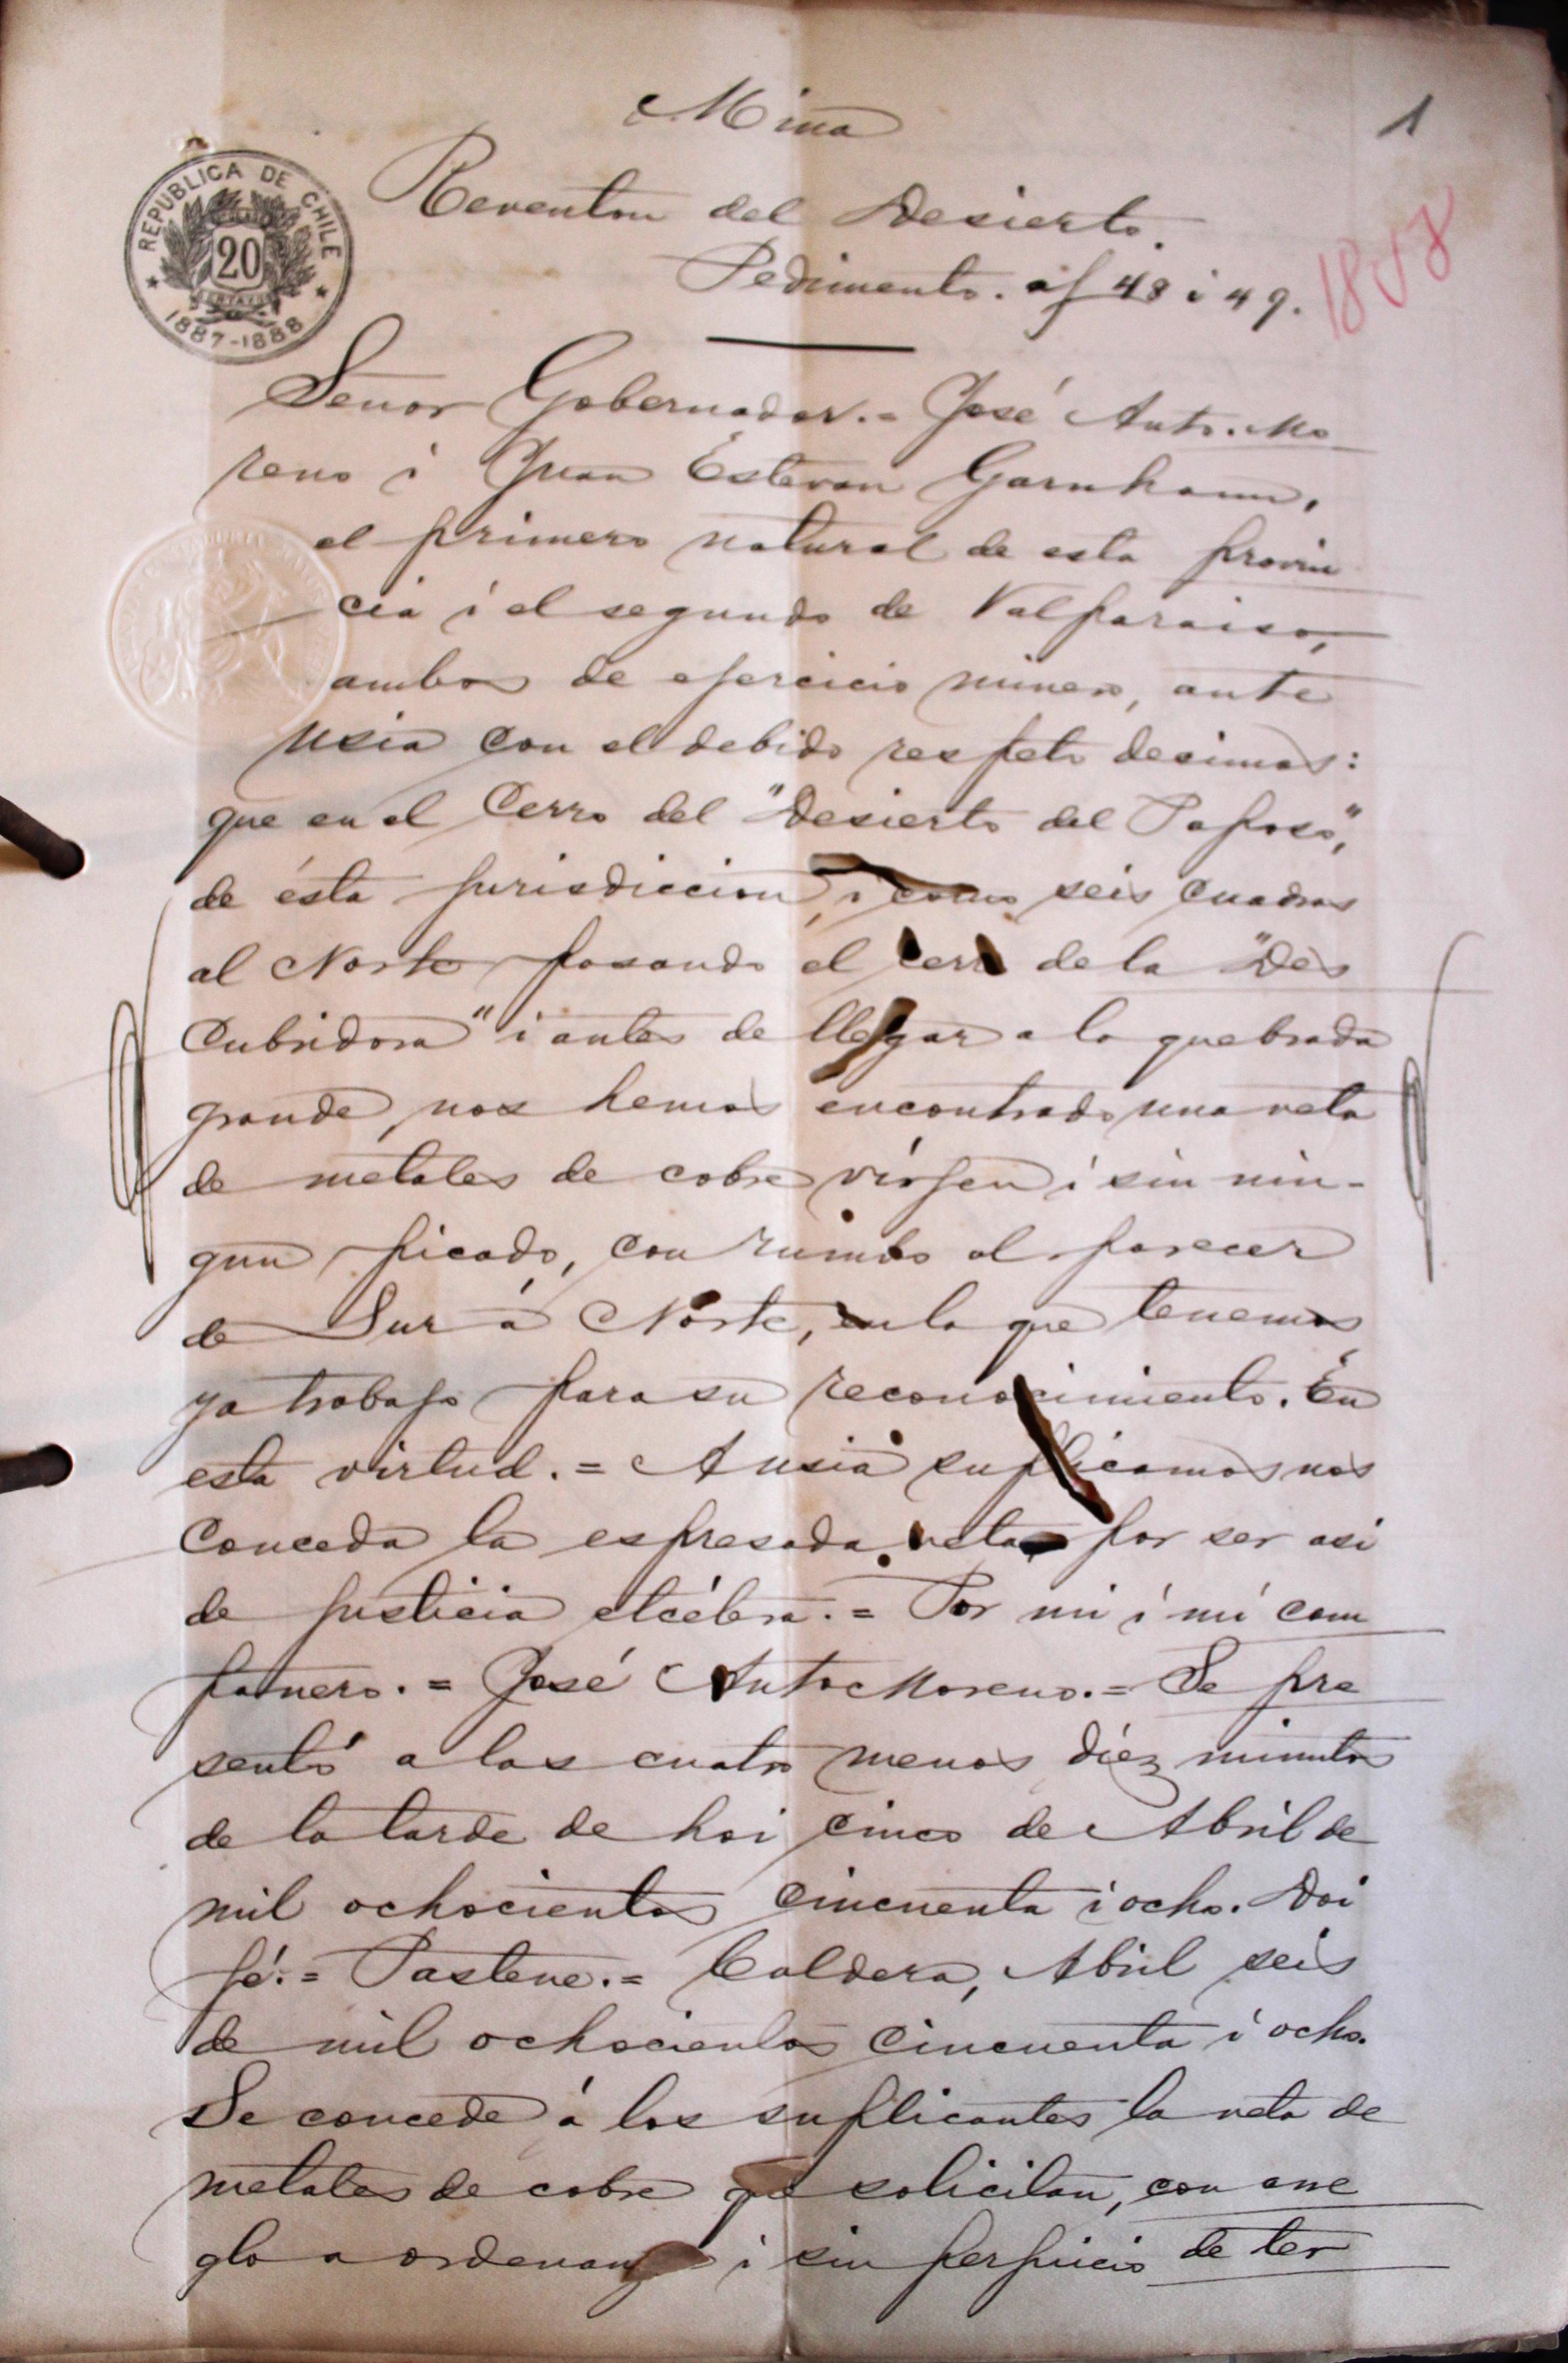 Mina
1
Reventon del Desierto.
Pedimento. af 48 i 49.
1858
REPUBLICA DE CHILE
20
CENTAVOS
1887-1888
Señor Gobernador.= José Anto. Mo
reno i Juan Estevan Garnham,
el primero natural de esta provin
cia i el segundo de Valparaiso,
ambos de ejercicio minero, ante
Usia con el debido respeto decimos:
que en el Cerro del "Desierto del Paposo",
de ésta jurisdiccion, i como seis cuadras
al Norte pasando el cerro de la "Des
cubridora" i antes de llegar a la quebrada
grande, nos hemos encontrado una veta
de metales de cobre vírjen i sin nin-
gun picado, con rumbo al parecer
de Sur á Norte, en la que tenemos
ya trabajo para su reconocimiento. En
esta virtud.= A Usia suplicamos nos
conceda la espresada veta por ser asi
de justicia etcétera.= Por mi i mi com
pañero.= José Anto Moreno.= Se pre
sentó a las cuatro menos diéz minutos
de la tarde de hoi cinco de Abril de
mil ochocientos cincuenta i ocho. Doi
fé.= Pastene.= Caldera, Abril seis
de mil ochocientos cincuenta i ocho.
Se concede á los suplicantes la veta de
metales de cobre que solicitan, con arre
glo a ordenanza i sin perjuicio de ter